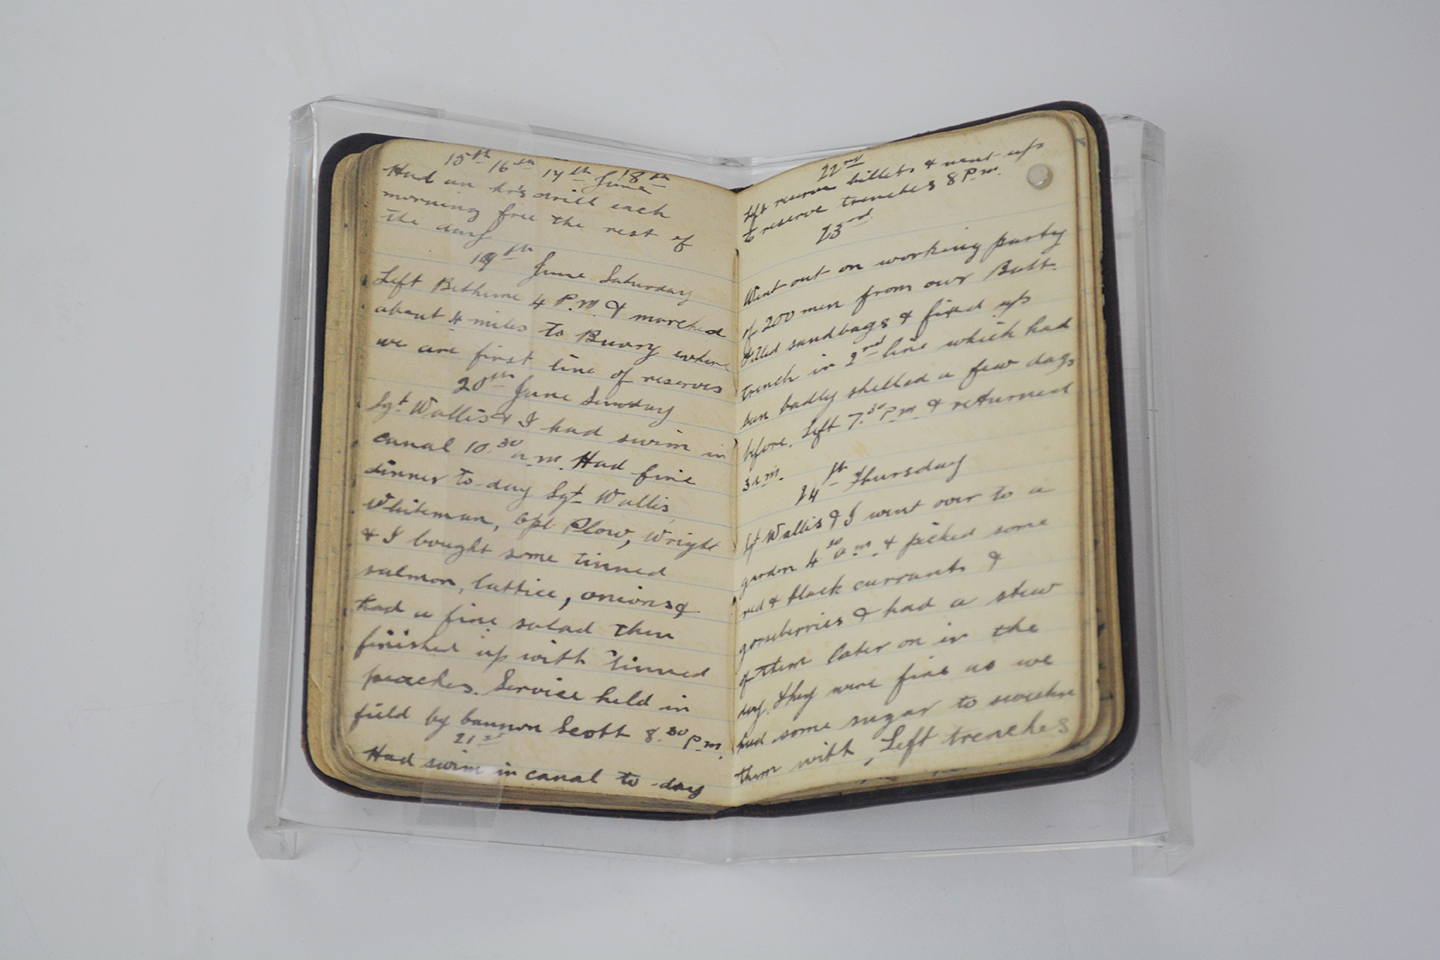 15th 16th 17th 18th June
Had an hr's drill each
morning free the rest of
the day
19th June Saturday
Left Bethune 4 P.M. & marched
about 4 miles to
we are first line of reserves
20th June Sunday
Sgt Wallis & I had swim in
canal 10.30 a.m. Had fine
dinner to-day Sgt Wallis
Whiteman, Cpl Plow, Wright
& I bought some tinned
salmon, luttice, onions &
had a fine salad then
finished up with tinned
peaches. Service held in
field by cannon Scott 8.30 P.M.
21st
Had swim in canal to-day
22nd
Left reserve billets & went up
to reserve trenches 8 P.M.
23rd
Went out on working party
of 200 men from our Batt.
filled sandbags & fixed up
trench in 2nd line which had
been badly shelled a few days
before. Left 7.30 P.M. & returned
3 a.m.
24th Thursday
Sgt Wallis & I went over to a
garden 4.30 a.m. & picked some
red & black currants &
gooseberries & had a stew
of them later on in the
day. They were fine as we
had some sugar to sweeten
them with. Left trenches